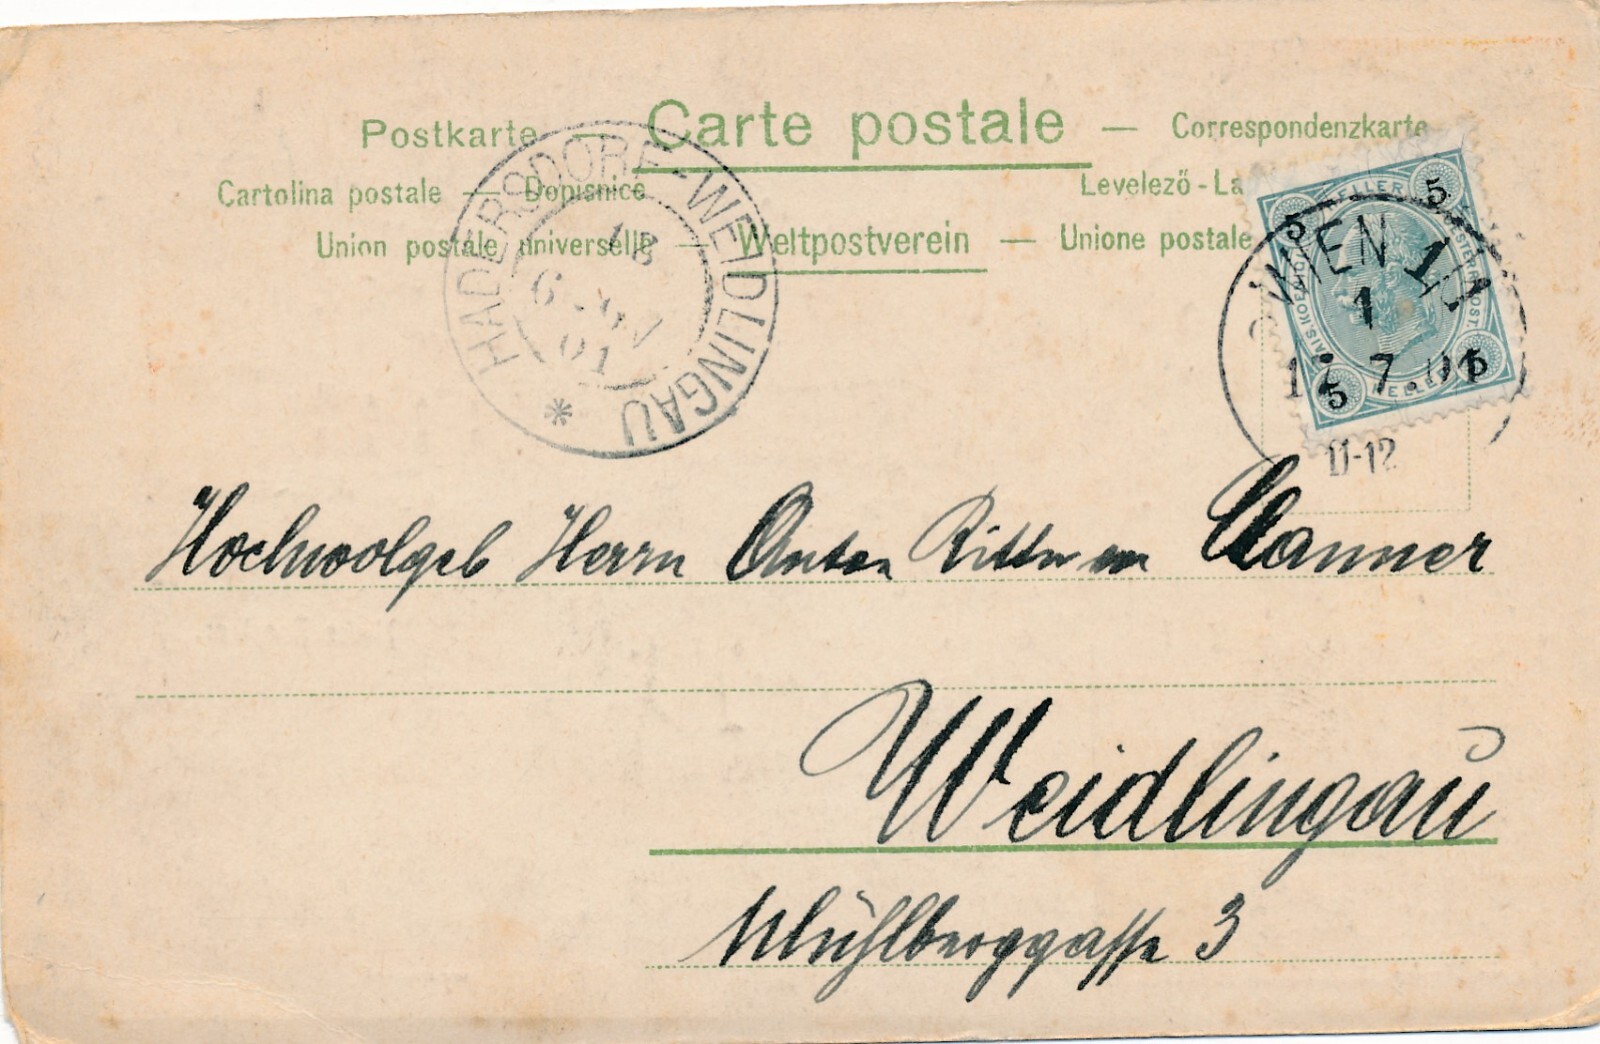 Postkarte — Carte postale — Correspondenzkarte
Cartolina postale — Dopisnice Levelező-La
Union postale universelle — Weltpostverein — Unione postale
HADERSDORF-WEIDLINGAU *
01
5 HELLER 5
WIEN 1/1
1
17 7.01
5 HELLER 5
11-12
Hochwolgeb Herrn Anton Ritter von
Weidlingau
Mühlberggasse 3